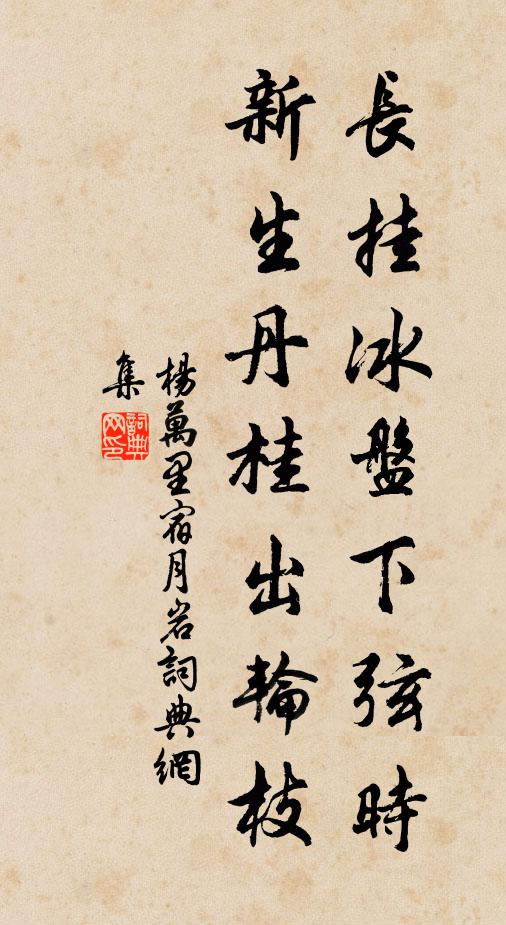 長挂冰盤下弦時
新生丹桂出輪枝
楊萬里宿月岩詞典網
集
詞典
网印